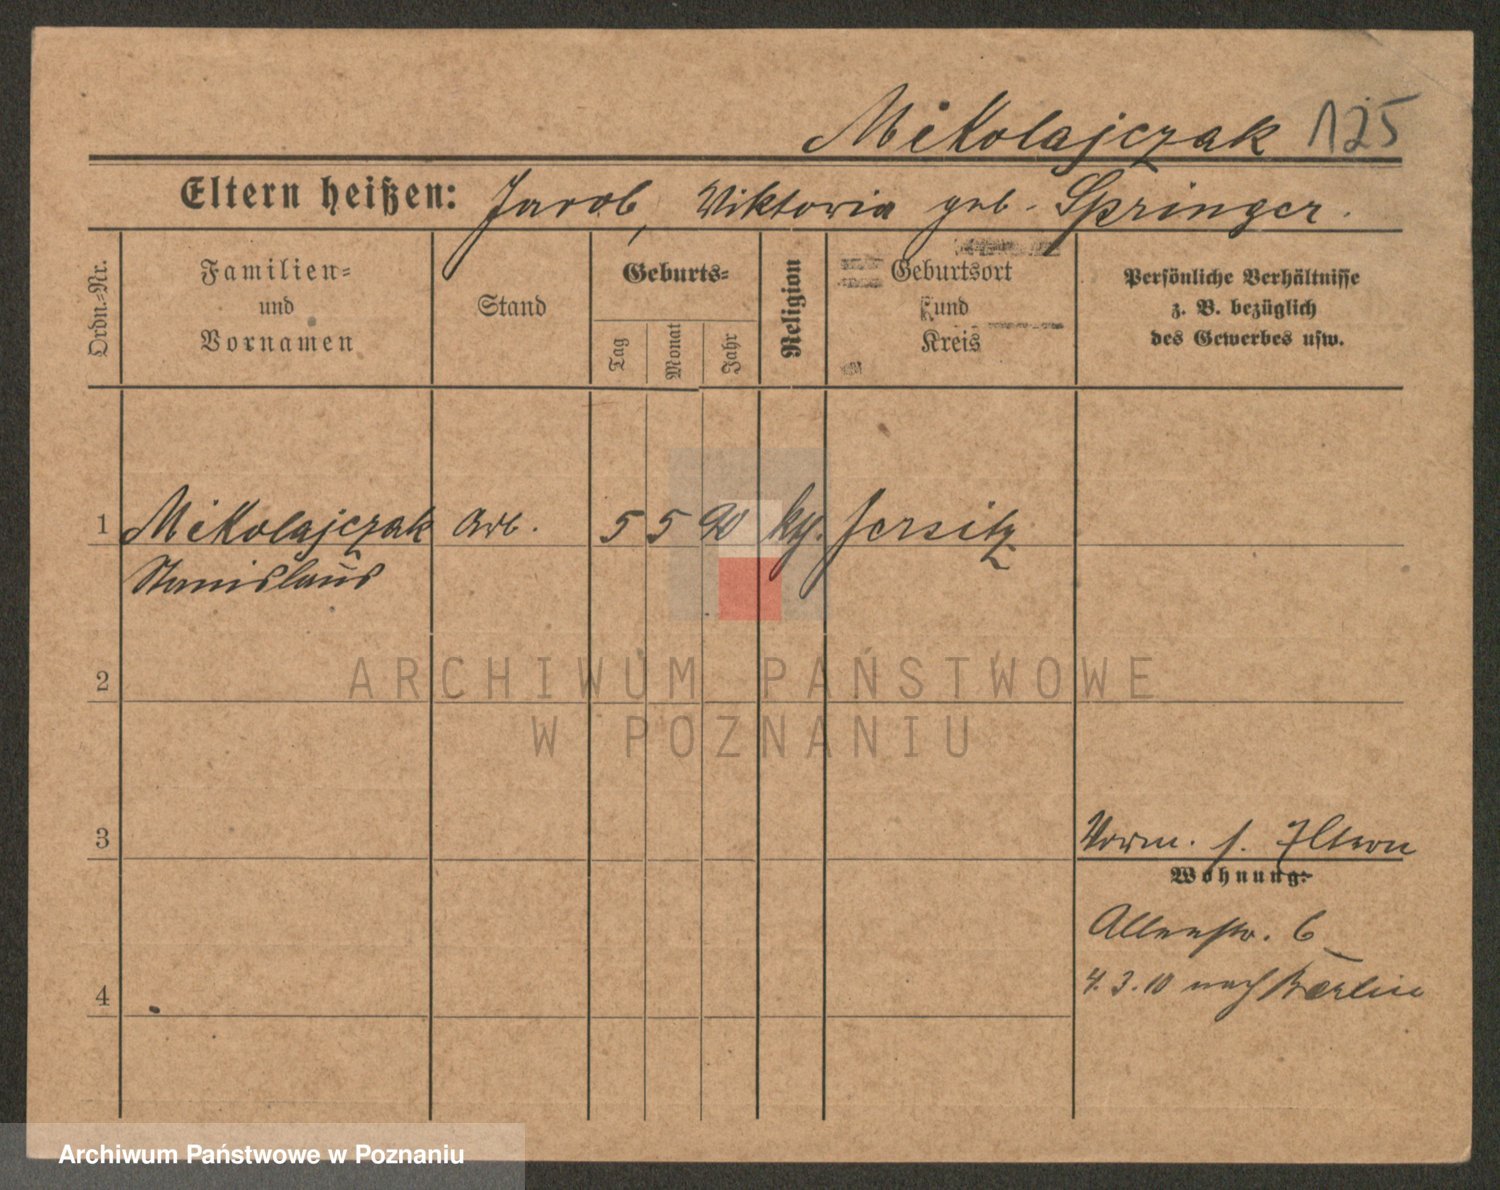 Mikolajczak 125
Eltern heißen: Jacob, Viktoria geb. Springer.
Ordn.-Nr.
Familien-
und
Vornamen
Stand
Geburts-
Tag
Monat
Jahr
Religion
Geburtsort
und
Kreis
Persönliche Verhältnisse
z. B. bezüglich
des Gewerbes usw.
1 Mikolajczak Arb. 5 5 90 kth. Jersitz
Stanislaus
2
ARCHIWUM PAŃSTWOWE
W POZNANIU
3
Vorm. s. Eltern
Wohnung:
Allenstr. 6
4
4.3.10 nach Berlin
Archiwum Państwowe w Poznaniu